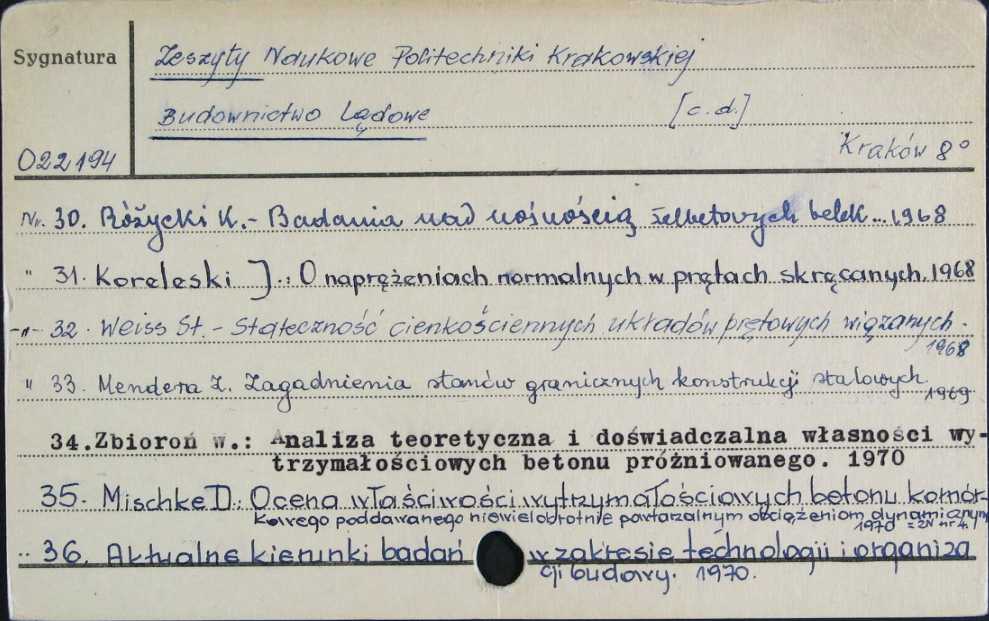 Sygnatura
Zeszyty Naukowe Politechniki Krakowskiej
Budownictwo Lądowe [c.d.]
022194
Kraków 8°
Nr. 30. Różycki K.- Badania nad nośnością żelbetowych belek... 1968
" 31. Koreleski J.: O naprężeniach normalnych w prętach skręcanych. 1968
-"- 32. Weiss St. - Stateczność cienkościennych układów prętowych wiązanych.
1968
" 33. Mendera Z. Zagadnienia stanów granicznych konstrukcji stalowych
1969
34.Zbioroń w.: Analiza teoretyczna i doświadczalna własności wy-
trzymałościowych betonu próżniowanego. 1970
35. Mischke D: Ocena właściwości wytrzymałościowych betonu komór-
kowego poddawanego niewielokrotnie powtarzalnym obciążeniom dynamicznym
1970 = ZN nr 4.
" 36. Aktualne kierunki badań w zakresie technologii i organiza
cji budowy. 1970.